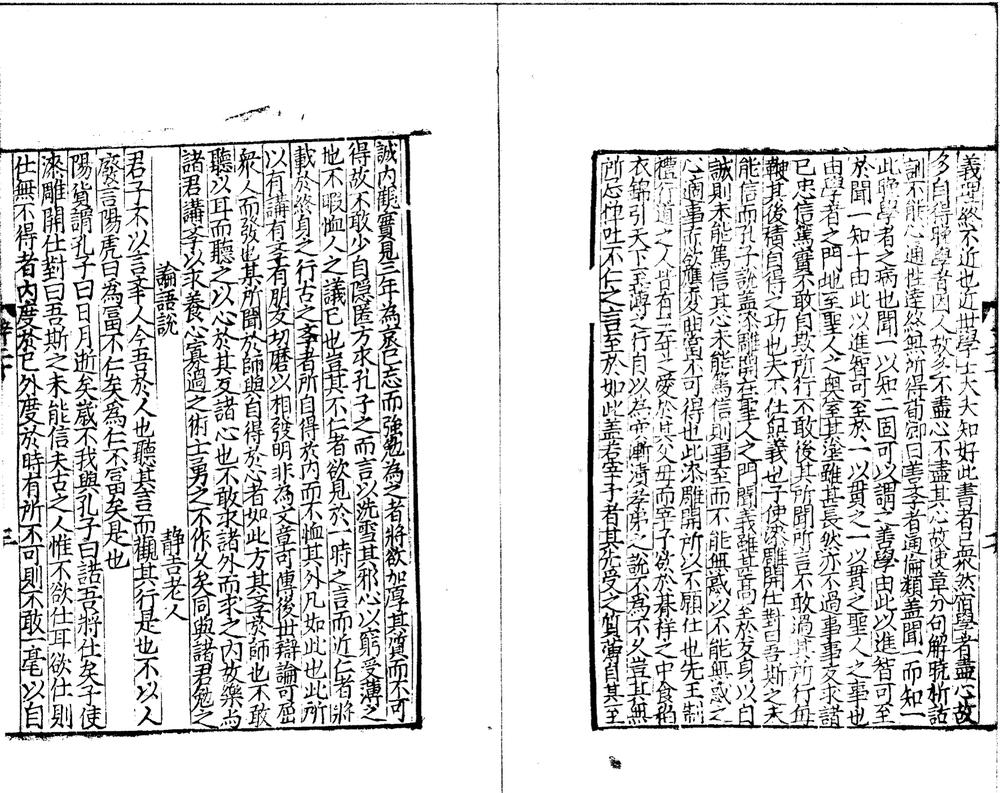 義理終不近也近世學士大夫知好此書者已衆然宿學者盡心故
多自得晚學者因人故多不盡心不盡其心故使章分句解曉析詁
訓不能心通性達終無所得荀卿曰善學者通倫類蓋聞一而知一
此晚學者之病也聞一以知二固可以謂之善學由此以進智可至
於聞一知十由此以進智可至於一以貫之一以貫之聖人之事也
由學者之門地至聖人之奧室其塗雖甚長然亦不過事事反求諸
己忠信篤實不敢自欺所行不敢後其所聞所言不敢過其所行每
鞭其後積自得之功也夫不仕無義也子使漆雕開仕對曰吾斯之未
能信而孔子說蓋漆雕開在聖人之門聞義雖甚高至於反身以自
誠則未能篤信其心未能篤信則事至而不能無惑以不能無惑之
心適事而欲應變曲當不可得也此漆雕開所以不願仕也先王制
禮行道之人皆有三年之愛於其父母而宰予欲於朞祥之中食稻
衣錦引天下至薄之行自以為安漸漬孝弟之說不為不久豈其無
所忌憚吐不仁之言至於如此蓋若宰予者其先受之質薄自其至
誠內觀實見三年為哀已忘而強勉為之者將欲加厚其質而不可
得故不敢少自隱匿方求孔子之而言以洗雪其邪心以窮受薄之
地不暇恤人之議已也豈其不仁者欲見於一時之言而近仁者將
載於終身之行古之學者所自得於內而不恤其外凡如此也此所
以有講有學有朋友切磨以相發明非為文章可傳後世辯論可屈
衆人而發也其所聞於師與自得於心者如此方其學於師也不敢
聽以耳而聽之以心於其反諸心也不敢求諸外而求之內故樂為
諸君講學以求養心寡過之術士勇之不作久矣同與諸君勉之
論語說　靜吉老人
君子不以言舉人今吾於人也聽其言而觀其行是也不以人
廢言陽虎曰為富不仁矣為仁不富矣是也
陽貨謂孔子曰日月逝矣歲不我與孔子曰諾吾將仕矣子使
漆雕開仕對曰吾斯之未能信夫古之人惟不欲仕耳欲仕則
仕無不得者內度於己外度於時有所不可則不敢一毫以自
三